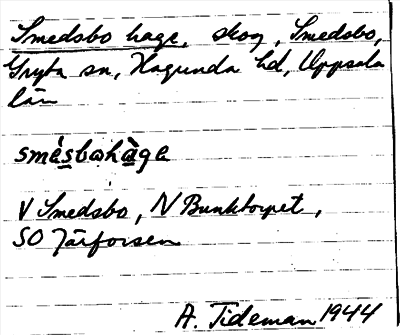 Smedsbo hage, skog, Smedsbo,
Gryta sn, Hagunda hd, Uppsala
län
smésbohàge
V Smedsbo, N Bunktorpet,
SO Järforsen
A. Tideman 1944